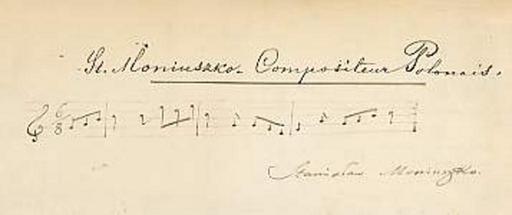 St. Moniuszko. Compositeur Polonais.
6
8
Stanisław Moniuszko.